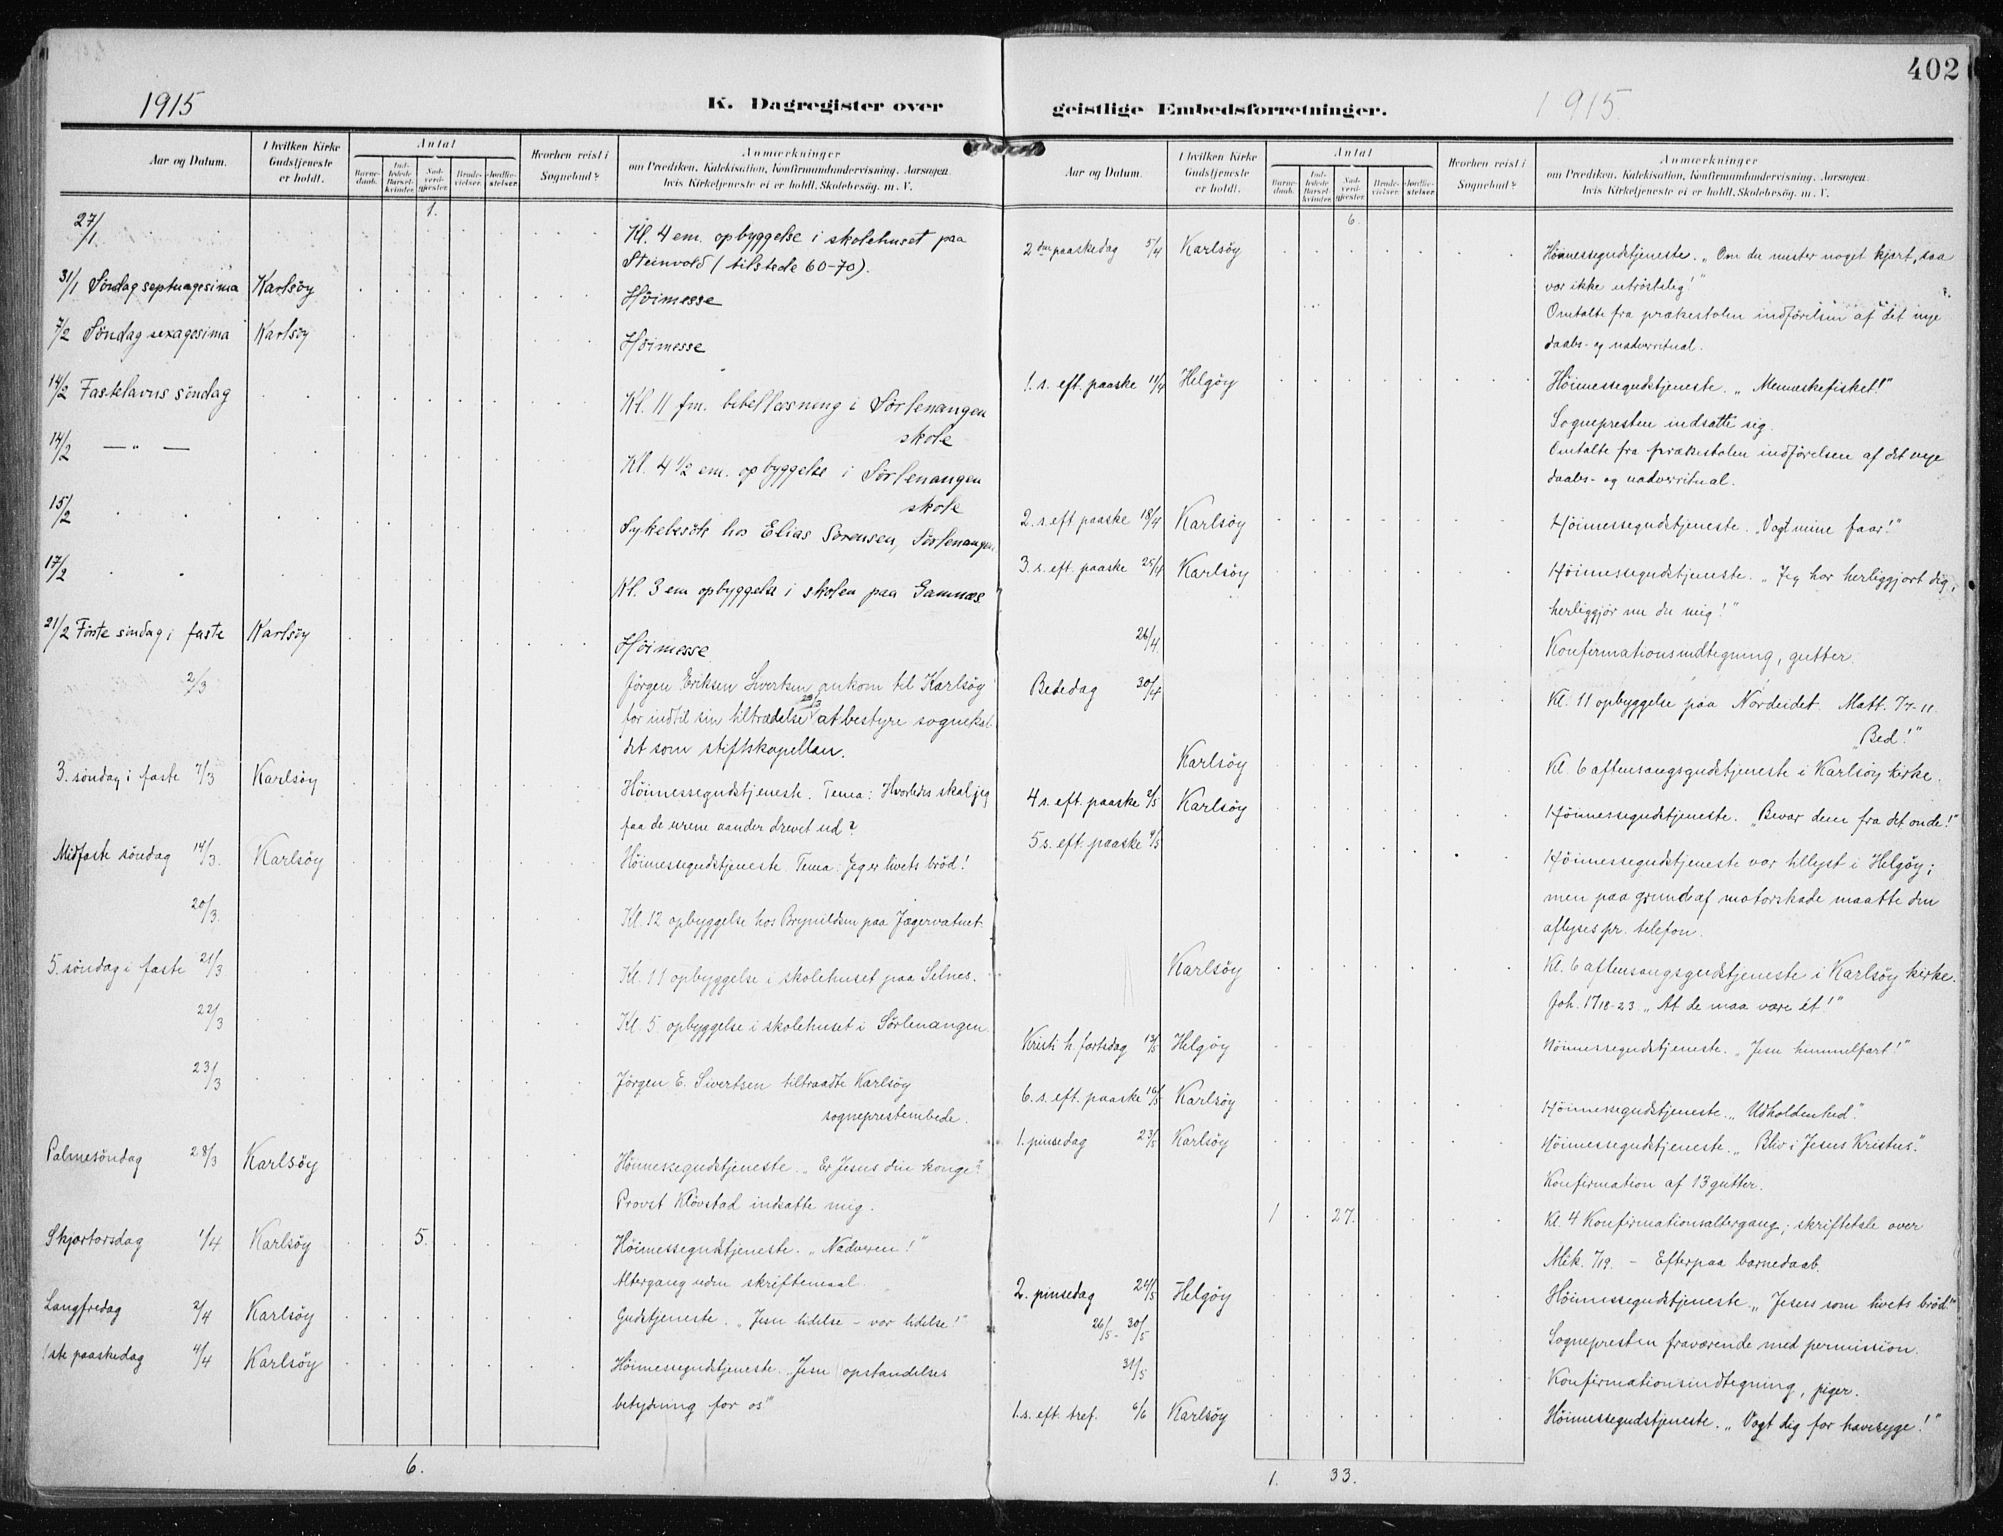 402
1915
K. Dagregister over
Aar og Datum.
I hvilken Kirke Gudstjeneste er holdt.
Antal
Barne-daab.
Ind-ledede Barsel-kvinder.
Nad-verd-gjester.
Brude-vielser.
Jordfæ-stelser.
Hvorhen reist i Sognebud?
Anmerkninger
om Prædiken, Katekisation, Konfirmandundervisning. Aarsagen
hvis Kirketjeneste ei er holdt. Skolebesøg. m. V.
1.
27/1 Kl. 4 em. opbyggelse i skolehuset paa
Steinvold (tilstede 60-70).
31/1 Søndag septuagesima Karlsöy Höimesse
7/2 Søndag sexagesima Karlsöy Höimesse
14/2 Fastelavns söndag Kl. 11 fm. bibellæsning i Sørlenangen
skole
14/2 — " — Kl. 4 1/2 em. opbyggelse i Sørlenangen
skole
15/2 Sykebesök hos Elias Sørensen, Sørlenangen
17/2 Kl. 3 em opbyggelse i skolen paa Gamnæs
21/2 Første söndag i faste Karlsöy Höimesse
2/3 Jörgen Eriksen Sivertsen ankom til Karlsöy
for indtil sin tiltrædelse 23/3 at bestyre sognekal-
det som stiftskapellan.
3. söndag i faste 7/3 Karlsöy Höimessegudstjeneste. Tema: Hvorledes skal jeg
faa de urene aander drevet ud?
Midfaste söndag 14/3. Karlsöy Höimessegudstjeneste. Tema: Jeg er livets bröd!
20/3. Kl. 12 opbyggelse hos Brynildsen paa Jægervatnet.
5. söndag i faste 21/3 Kl. 11 opbyggelse i skolehuset paa Selnes.
22/3 Kl. 5 opbyggelse i skolehuset i Sörlenangen
23/3 Jörgen E. Sivertsen tiltraadte Karlsöy
sogneprestembede.
Palmesöndag 28/3 Karlsöy Höimessegudstjeneste. „Er Jesus din konge?"
Provst Klövstad indsatte mig.
Skjærtorsdag 1/4 Karlsöy 5. Höimessegudstjeneste. „Nadveren!"
Altergang uden skriftemaal.
Langfredag 2/4 Karlsöy Gudstjeneste. „Jesu lidelse - vor lidelse!"
1ste paaskedag 4/4 Karlsöy Höimessegudstjeneste. „Jesu opstandelses
betydning for os!"
6.
geistlige Embedsforretninger.
1915.
Aar og Datum.
I hvilken Kirke Gudstjeneste er holdt.
Antal
Barne-daab.
Ind-ledede Barsel-kvinder.
Nad-verd-gjester.
Brude-vielser.
Jordfæ-stelser.
Hvorhen reist i Sognebud?
Anmerkninger
om Prædiken, Katekisation, Konfirmandundervisning. Aarsagen
hvis Kirketjeneste ei er holdt. Skolebesøg. m. V.
6.
2den paaskedag 5/4 Karlsöy Höimessegudstjeneste. „Om du mister noget kjært, saa
vær ikke utröstelig!"
Omtalte fra prækestolen indförelsen af det nye
daabs- og nadverritual.
1. s. eft. paaske 11/4 Helgöy Höimessegudstjeneste. „Menneskefisket!"
Sognepresten indsatte sig.
Omtalte fra prækestolen indförelsen af det nye
daabs- og nadverritual.
2. s. eft paaske 18/4 Karlsöy Höimessegudstjeneste. „Vogt mine faar!"
3. s. eft. paaske 25/4 Karlsöy Höimessegudstjeneste. „Jeg har herliggjort dig,
herliggjör nu du mig!"
26/4 Konfirmationsindtegning, gutter.
Bededag 30/4 Kl. 11 opbyggelse paa Nordeidet. Matt. 7 7-11
„Bed!"
Karlsöy Kl. 6 aftensangsgudstjeneste i Karlsöy kirke.
4 s. eft. paaske 2/5 Karlsöy Höimessegudstjeneste. „Bevar dem fra det onde!"
5 s. eft. paaske 9/5 Höimessegudstjeneste var tillyst i Helgöy;
men paa grund af motorskade maatte den
aflyses pr. telefon.
Karlsöy Kl. 6 aftensangsgudstjeneste i Karlsöy kirke.
Joh. 17 18-23. „At de maa være ét!"
Kristi h. fartsdag 13/5 Helgöy Höimessegudstjeneste. „Jesu himmelfart!"
6. s. eft. paaske 16/5 Karlsöy Höimessegudstjeneste. „Udholdenhed."
1. pinsedag 23/5 Karlsöy Höimessegudstjeneste. „Bliv i Jesus Kristus."
Konfirmation af 13 gutter.
1 27. Kl. 4 Konfirmationsaltergang; skriftetale over
Mik. 7 19. - Efterpaa barnedaab.
2. pinsedag 24/5 Helgöy Höimessegudstjeneste „Jesus som livets bröd!"
26/5 - 30/5 Sognepresten fraværende med permission.
31/5 Konfirmationsindtegning, piger.
1. s. eft. tref. 6/6 Karlsöy Höimessegudstjeneste. „Vogt dig for havesyge!"
1. 33.